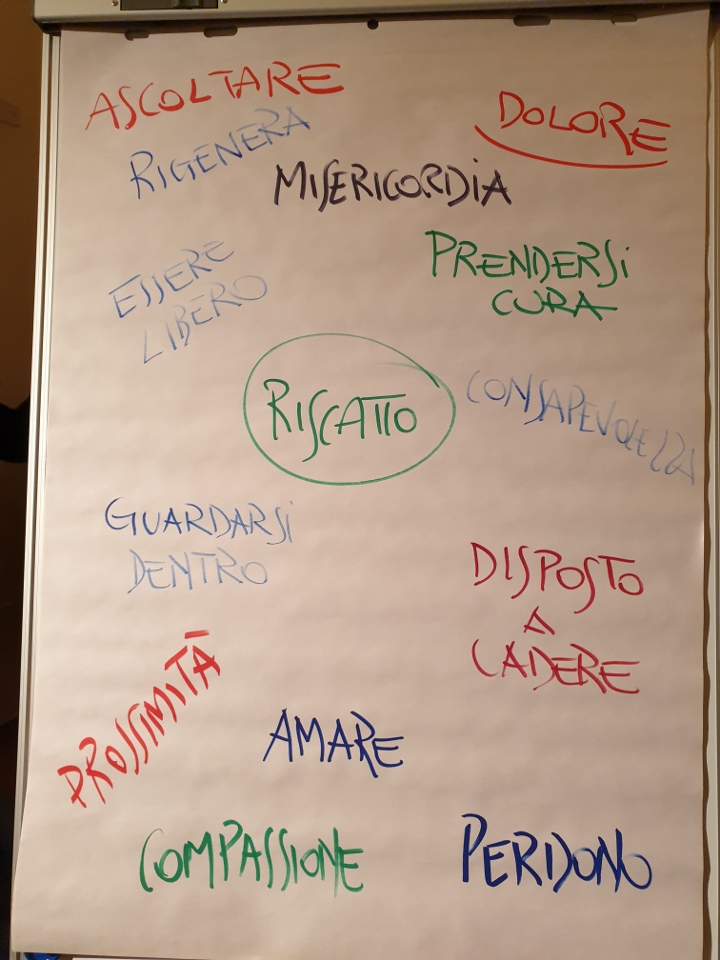 ASCOLTARE
DOLORE
RIGENERA
MISERICORDIA
PRENDERSI
CURA
ESSERE
LIBERO
RISCATTO
CONSAPEVOLEZZA
GUARDARSI
DENTRO
DISPOSTO
A
CADERE
PROSSIMITÀ
AMARE
COMPASSIONE
PERDONO